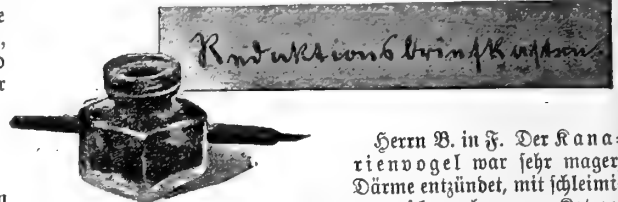 Redaktionsbriefkasten
Herrn B. in F. Der Kana=
rienvogel war sehr mager
Därme entzündet, mit schleimi